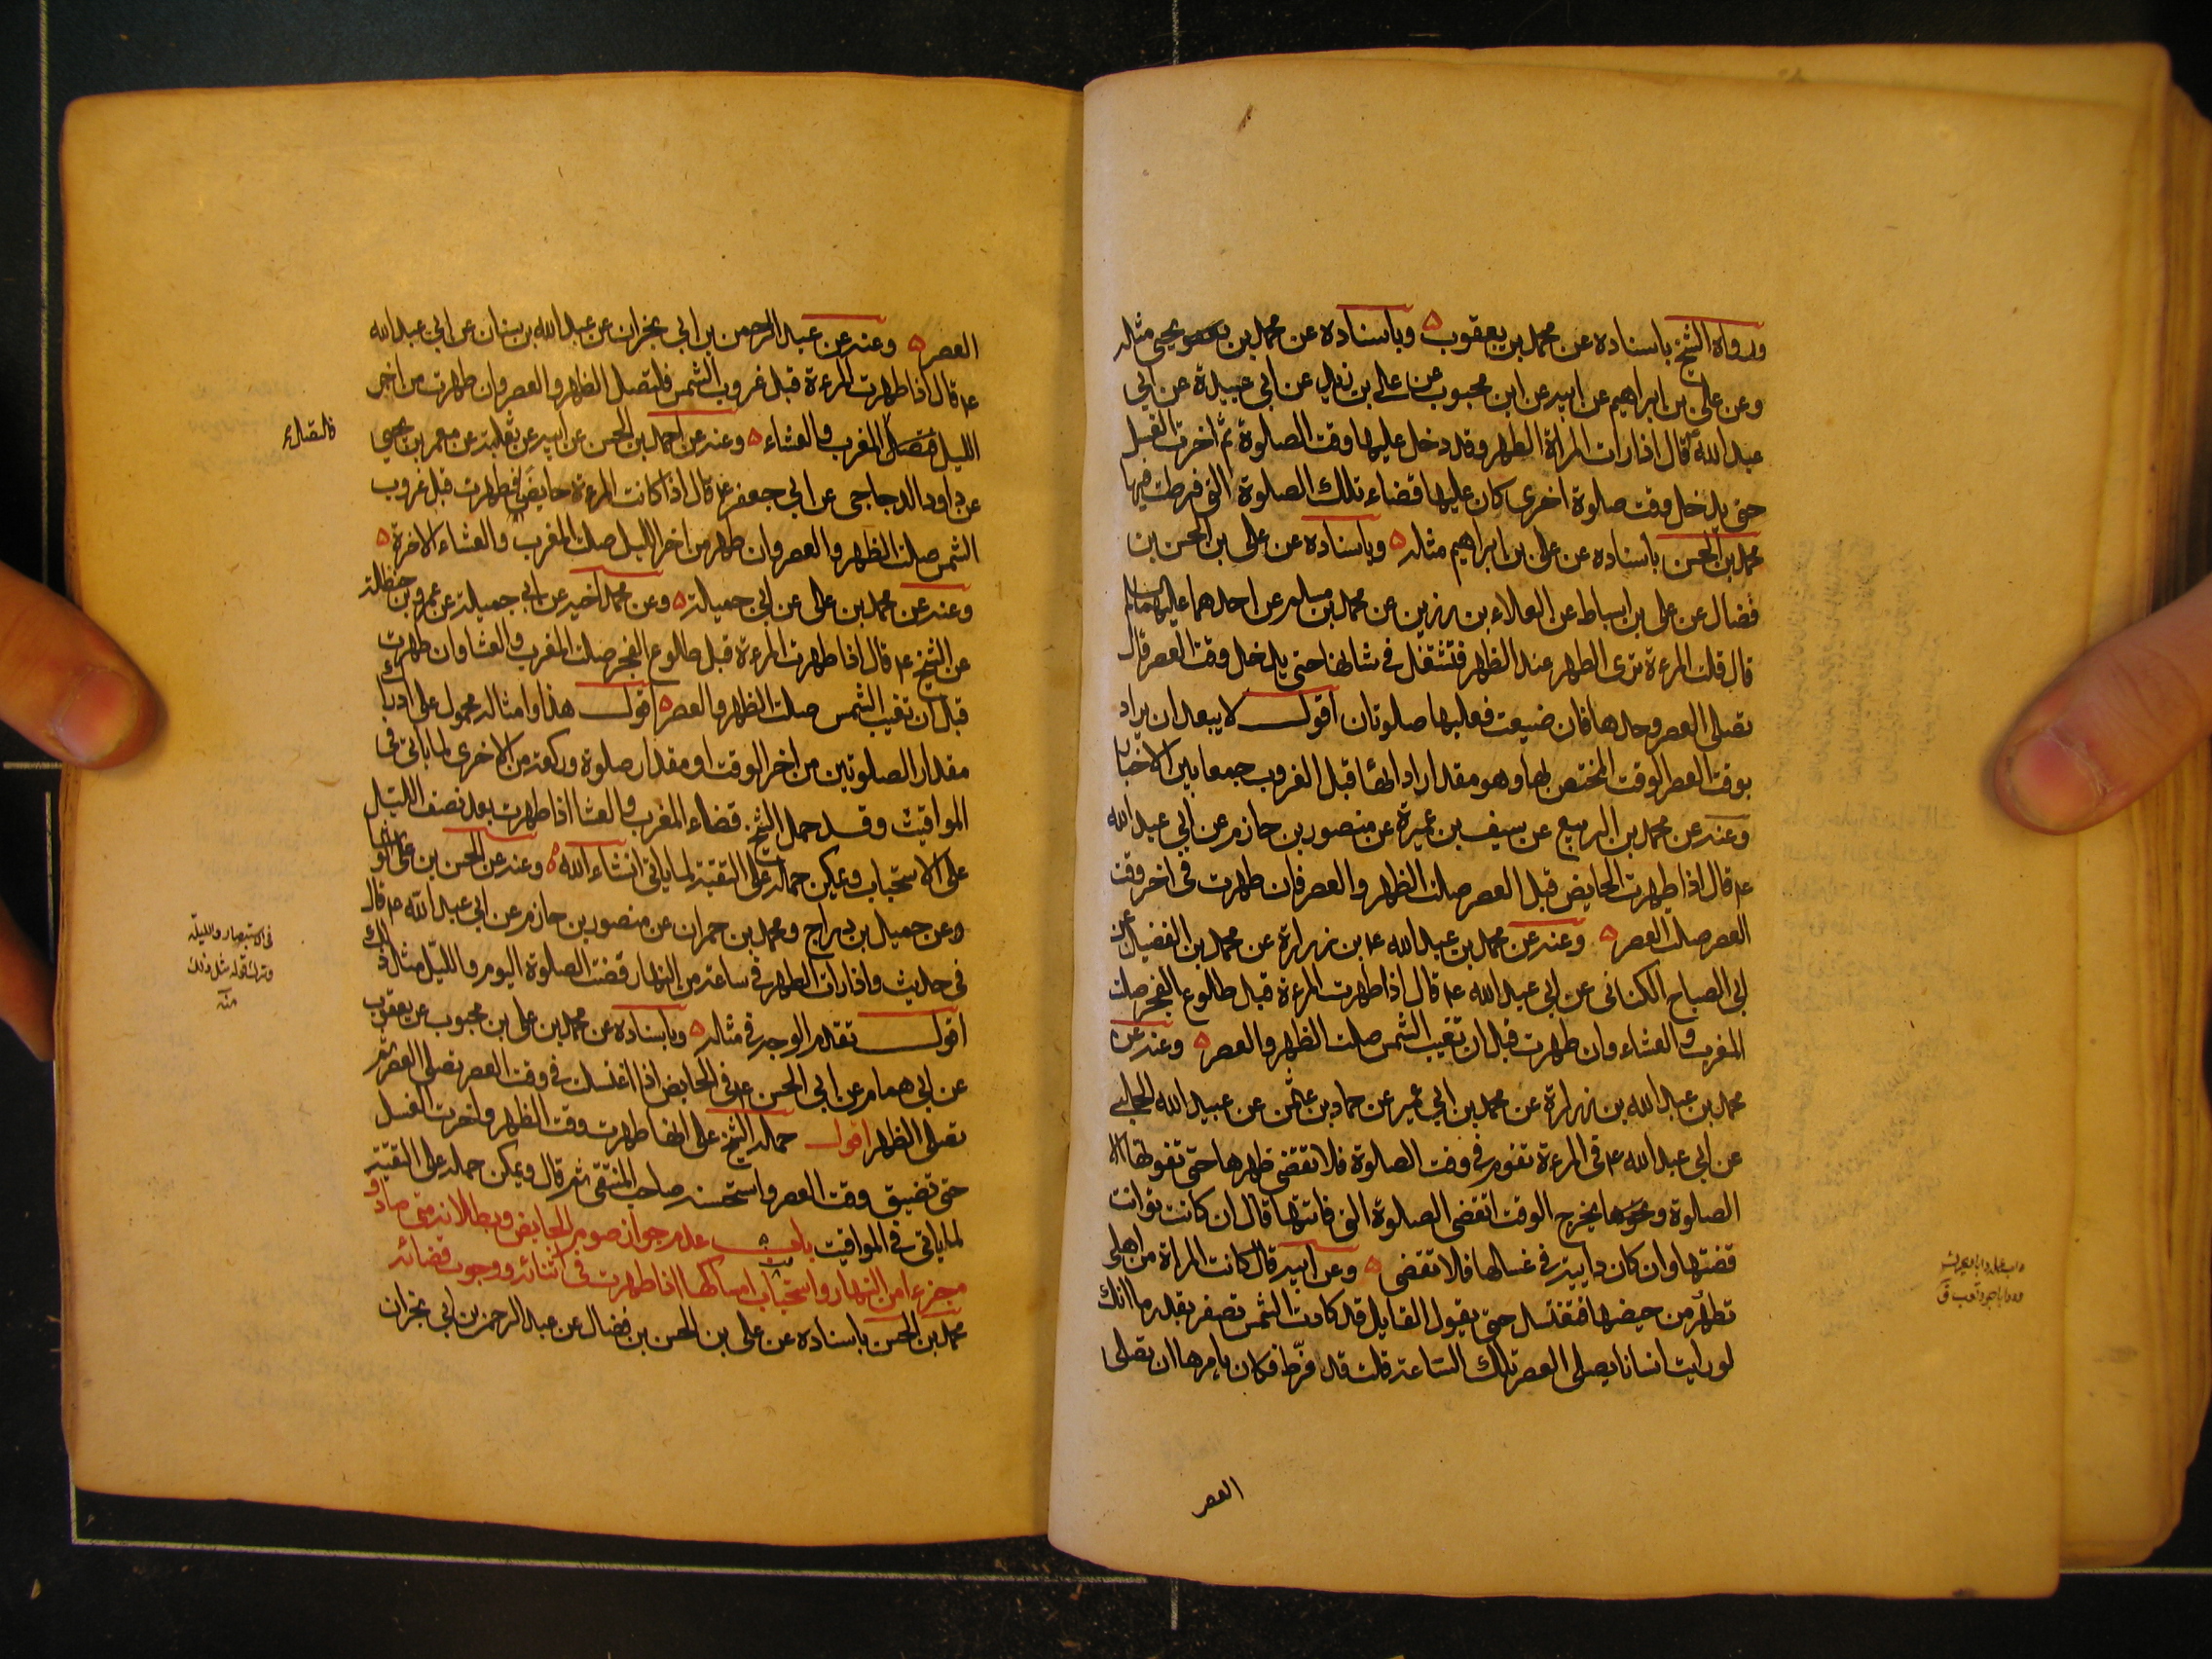 ورواه الشيخ باسناده عن محمد بن يعقوب وباسناده عن محمد بن يحيى مثله
وعن علي بن ابراهيم عن ابيه عن ابن محبوب عن علي بن زيد عن ابي عبيدة عن ابي
عبد الله ع قال اذا رات المراة الطهر وقد دخل عليها وقت الصلوة ثم اخرت الغسل
حتى يدخل وقت صلوة اخرى كان عليها قضاء تلك الصلوة التي فرطت فيها
محمد بن الحسن باسناده عن علي بن ابراهيم مثله وباسناده عن علي بن الحسن بن
فضال عن علي بن اسباط عن العلاء بن رزين عن محمد بن مسلم عن احدهما عليهما السلام
قال قلت المرءة ترى الطهر عند الظهر فتشتغل في شانها حتى يدخل وقت العصر قال
تصلى العصر وحدها فان ضيعت فعليها صلوتان اقول لا يبعد ان يراد
بوقت العصر الوقت المختص بها وهو مقدار ادائها قبل الغروب جمعا بين الاخبار
وعنه عن محمد بن الربيع عن سيف بن عميرة عن منصور بن حازم عن ابي عبد الله
ع قال اذا طهرت الحايض قبل العصر صلت الظهر والعصر فان طهرت في اخر وقت
العصر صلت العصر وعنه عن محمد بن عبد الله ع بن زرارة عن محمد بن الفضيل عن
ابي الصباح الكناني عن ابي عبد الله ع قال اذا طهرت المرءة قبل طلوع الفجر صلت
المغرب والعشاء وان طهرت قبل ان تغيب الشمس صلت الظهر والعصر وعنه عن
محمد بن عبد الله بن زرارة عن محمد بن ابي عمير عن حماد بن عثمن عن عبيد الله الحلبي
عن ابي عبد الله ع في المرءة تقوم في وقت الصلوة فلا تقضى ظهرها حتى تفوتها
الصلوة ويخرج الوقت اتقضى الصلوة التي فاتتها قال ان كانت توانت
قضتها وان كان دايبة في غسلها فلا تقضى وعن ابيه قال كانت المراة من اهلي
تطهر من حيضها فتغتسل حتى يقول القايل قد كادت الشمس تصفر بقدر ما انك
لو رايت انسانا يصلى العصر تلك الساعة قلت قد فرط فكان يامرها ان تصلى
العصر
العصر وعنه عن عبد الرحمن بن ابي نجران عن عبد الله بن سنان عن ابي عبد الله
ع قال اذا طهرت المرءة قبل غروب الشمس فلتصل الظهر والعصر وان طهرت من اخر
الليل فتصل المغرب والعشاء وعنه عن احمد بن الحسن عن ابيه عن ثعلبة عن معمر بن يحيى
عن داود الدجاجي عن ابي جعفر ع قال اذا كانت المرءة حايض فطهرت قبل غروب
الشمس صلت الظهر والعصر وان طهر من اخر الليل صلت المغرب والعشاء الاخرة
وعنه عن محمد بن علي عن ابي جميلة وعن محمد اخيه عن ابي جميلة عن عمرو بن حنظلة
عن الشيخ ع قال اذا طهرت المرءة قبل طلوع الفجر صلت المغرب والعشا وان طهرت
قبل ان تغيب الشمس صلت الظهر والعصر اقول هذا وامثاله محمول على ادراك
مقدار الصلوتين من اخر الوقت او مقدار صلوة وركعة من الاخرى لما ياتي في
المواقيت وقد حمل الشيخ قضاء المغرب والعشا اذا طهرت بعد نصف الليل
على الاستحباب ويمكن حمله على التقية لما ياتي انشاء الله وعنه عن الحسن بن علي
وعن جميل بن دراج ومحمد بن حمران عن منصور بن حازم عن ابي عبد الله ع قال
في حديث واذا رات الطهر في ساعة من النهار قضت الصلوة اليوم والليل مثل ذلك
اقول تقدم الوجه في مثله وباسناده عن محمد بن علي بن محبوب عن يعقوب
عن ابي همام عن ابي الحسن ع في الحايض اذا اغتسلت في وقت العصر تصلى العصر ثم
تصلى الظهر اقول حمله الشيخ على انها طهرت وقت الظهر واخرت الغسل
حتى تضيق وقت العصر واستحسنه صاحب المنتقى ثم قال ويمكن حمله على التقية
لما ياتي في المواقيت باب عدم جواز صوم الحايض وبطلانه متى صادف
جزءا من النهار واستحباب امساكها اذا طهرت في اثنائه ووجوب قضائه
محمد بن الحسن باسناده عن علي بن الحسن بن فضال عن عبد الرحمن بن ابي نجران
في الاستبصار والليلة
وترك قوله مثل ذلك
منه